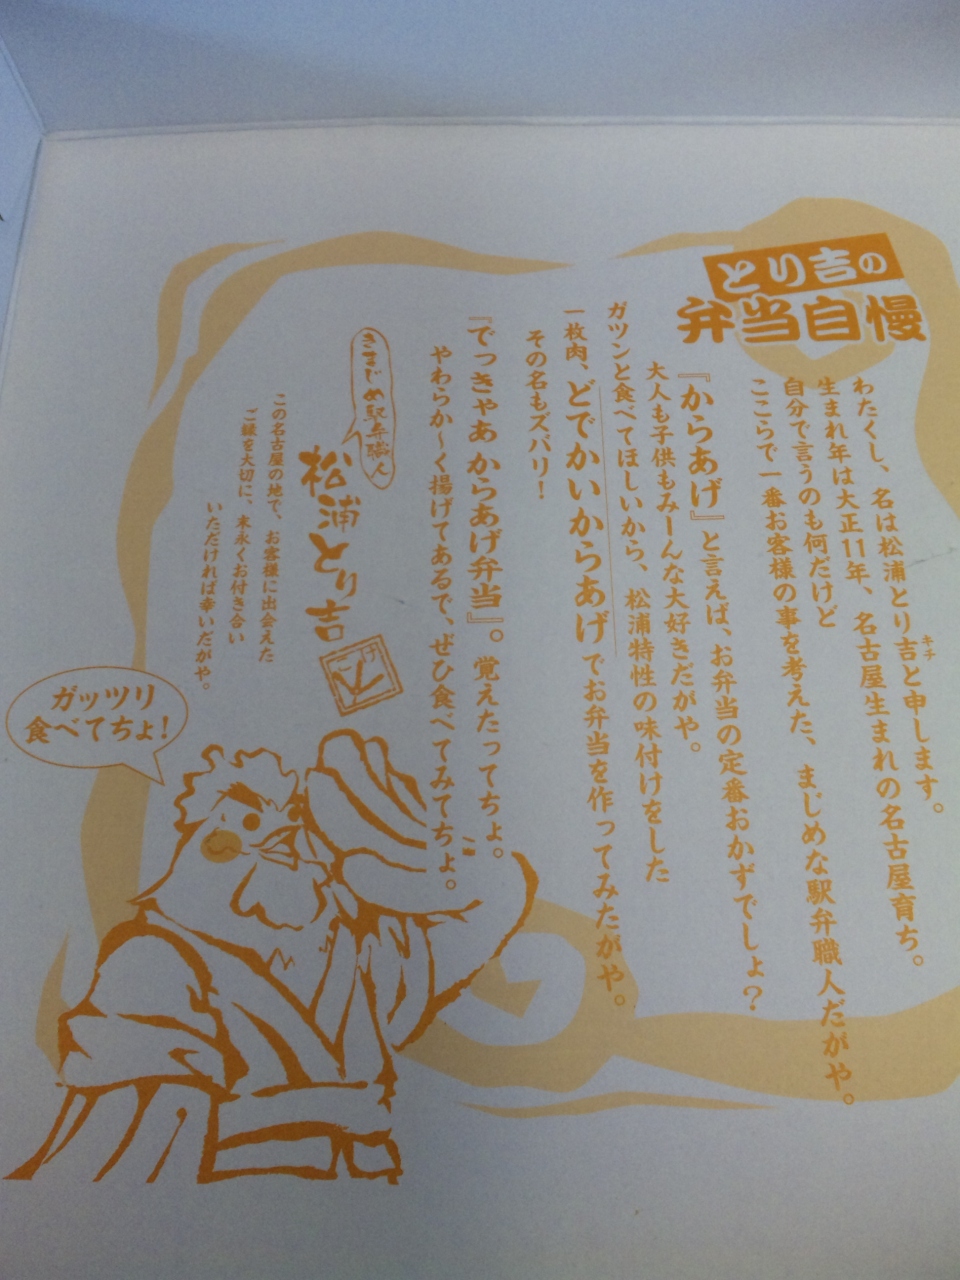 とり吉の
弁当自慢
わたくし、名は松浦とり吉と申します。
キチ
生まれ年は大正11年、名古屋生まれの名古屋育ち。
自分で言うのも何だけど
ここらで一番お客様の事を考えた、まじめな駅弁職人だがや。
『からあげ』と言えば、お弁当の定番おかずでしょ？
大人も子供もみーんな大好きだがや。
ガツンと食べてほしいから、松浦特性の味付けをした
一枚肉、どでかいからあげでお弁当を作ってみたがや。
その名もズバリ！
『でっきゃあ からあげ弁当』。覚えたってちょ。
やわらか〜く揚げてあるで、ぜひ食べてみてちょ。
きまじめ駅弁職人
松浦とり吉
この名古屋の地で、お客様に出会えた
ご縁を大切に、末永くお付き合い
いただければ幸いだがや。
ガッツリ
食べてちょ！